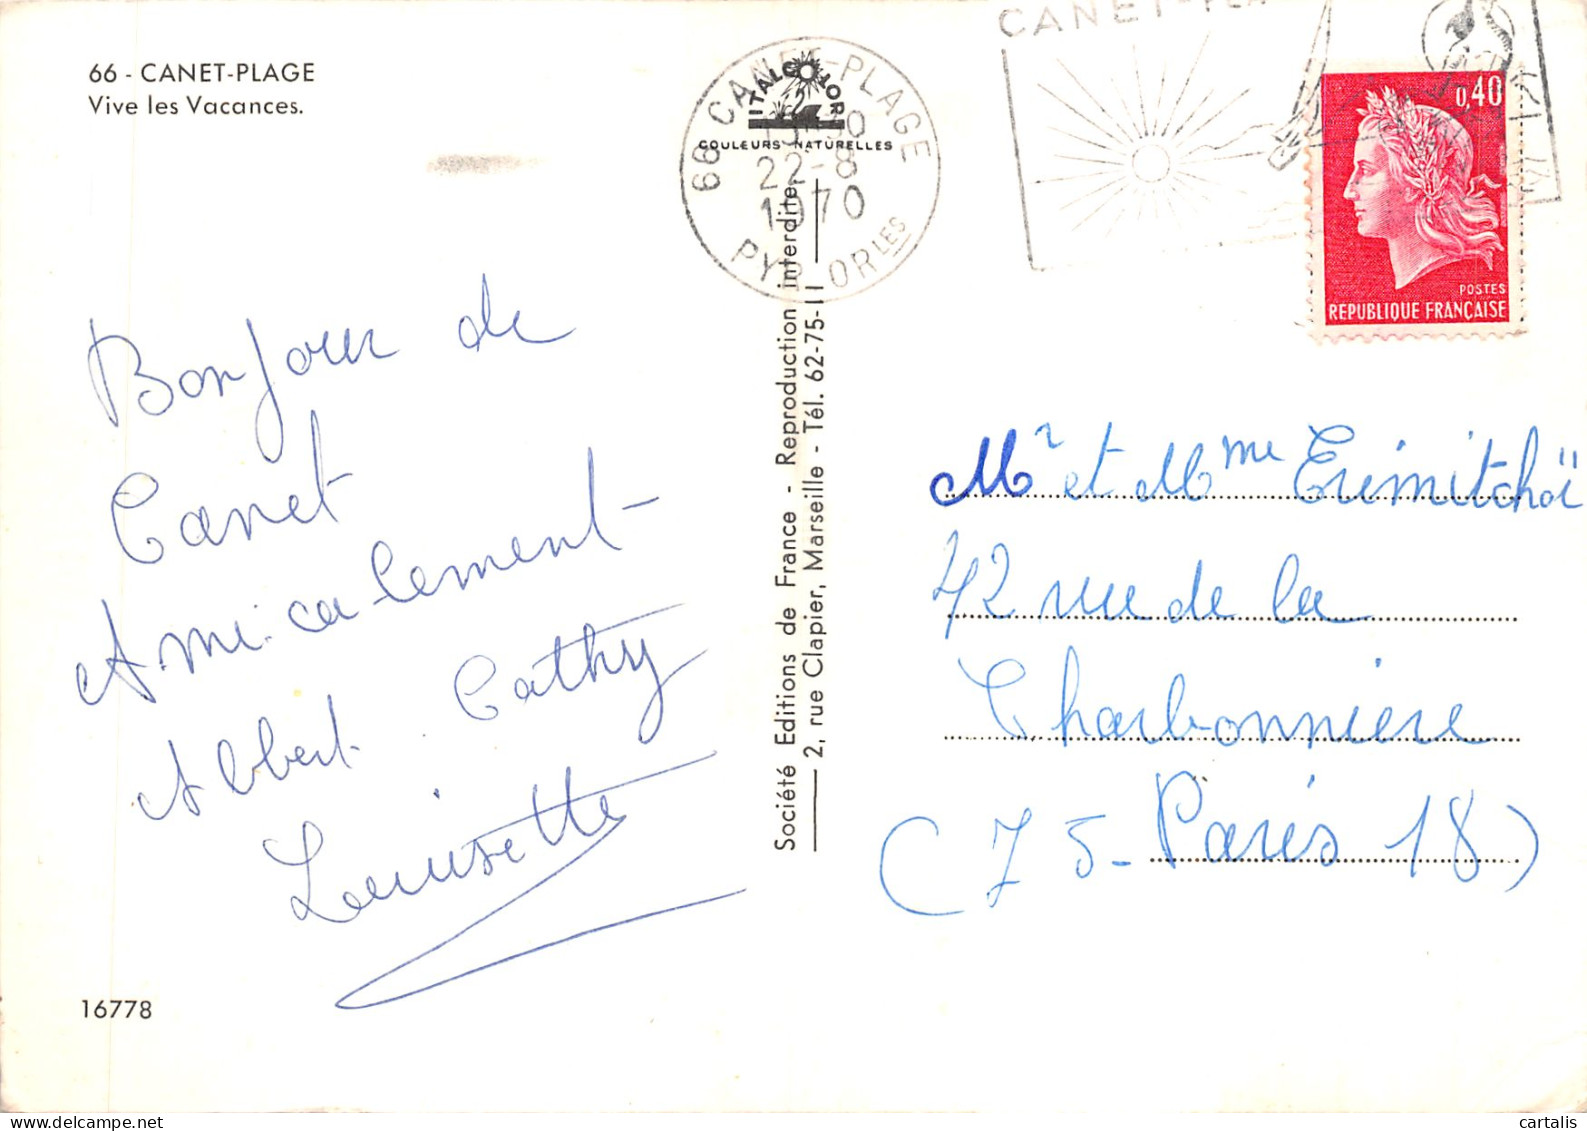 66 - CANET-PLAGE
Vive les Vacances.
Bonjour de
Canet
Amicalement -
Albert. Cathy
Louisette
16778
66 CANET-PLAGE
22-8
1970
PYR. ORLES
ITALCOLOR
COULEURS NATURELLES
Société Editions de France - Reproduction interdite
2, rue Clapier, Marseille - Tél. 62-75-11
CANET-PLA
0,40
POSTES
REPUBLIQUE FRANÇAISE
Mr et Mme Erimitchoï
42 rue de la
Charbonniere
(75 - Paris 18)
cartalis